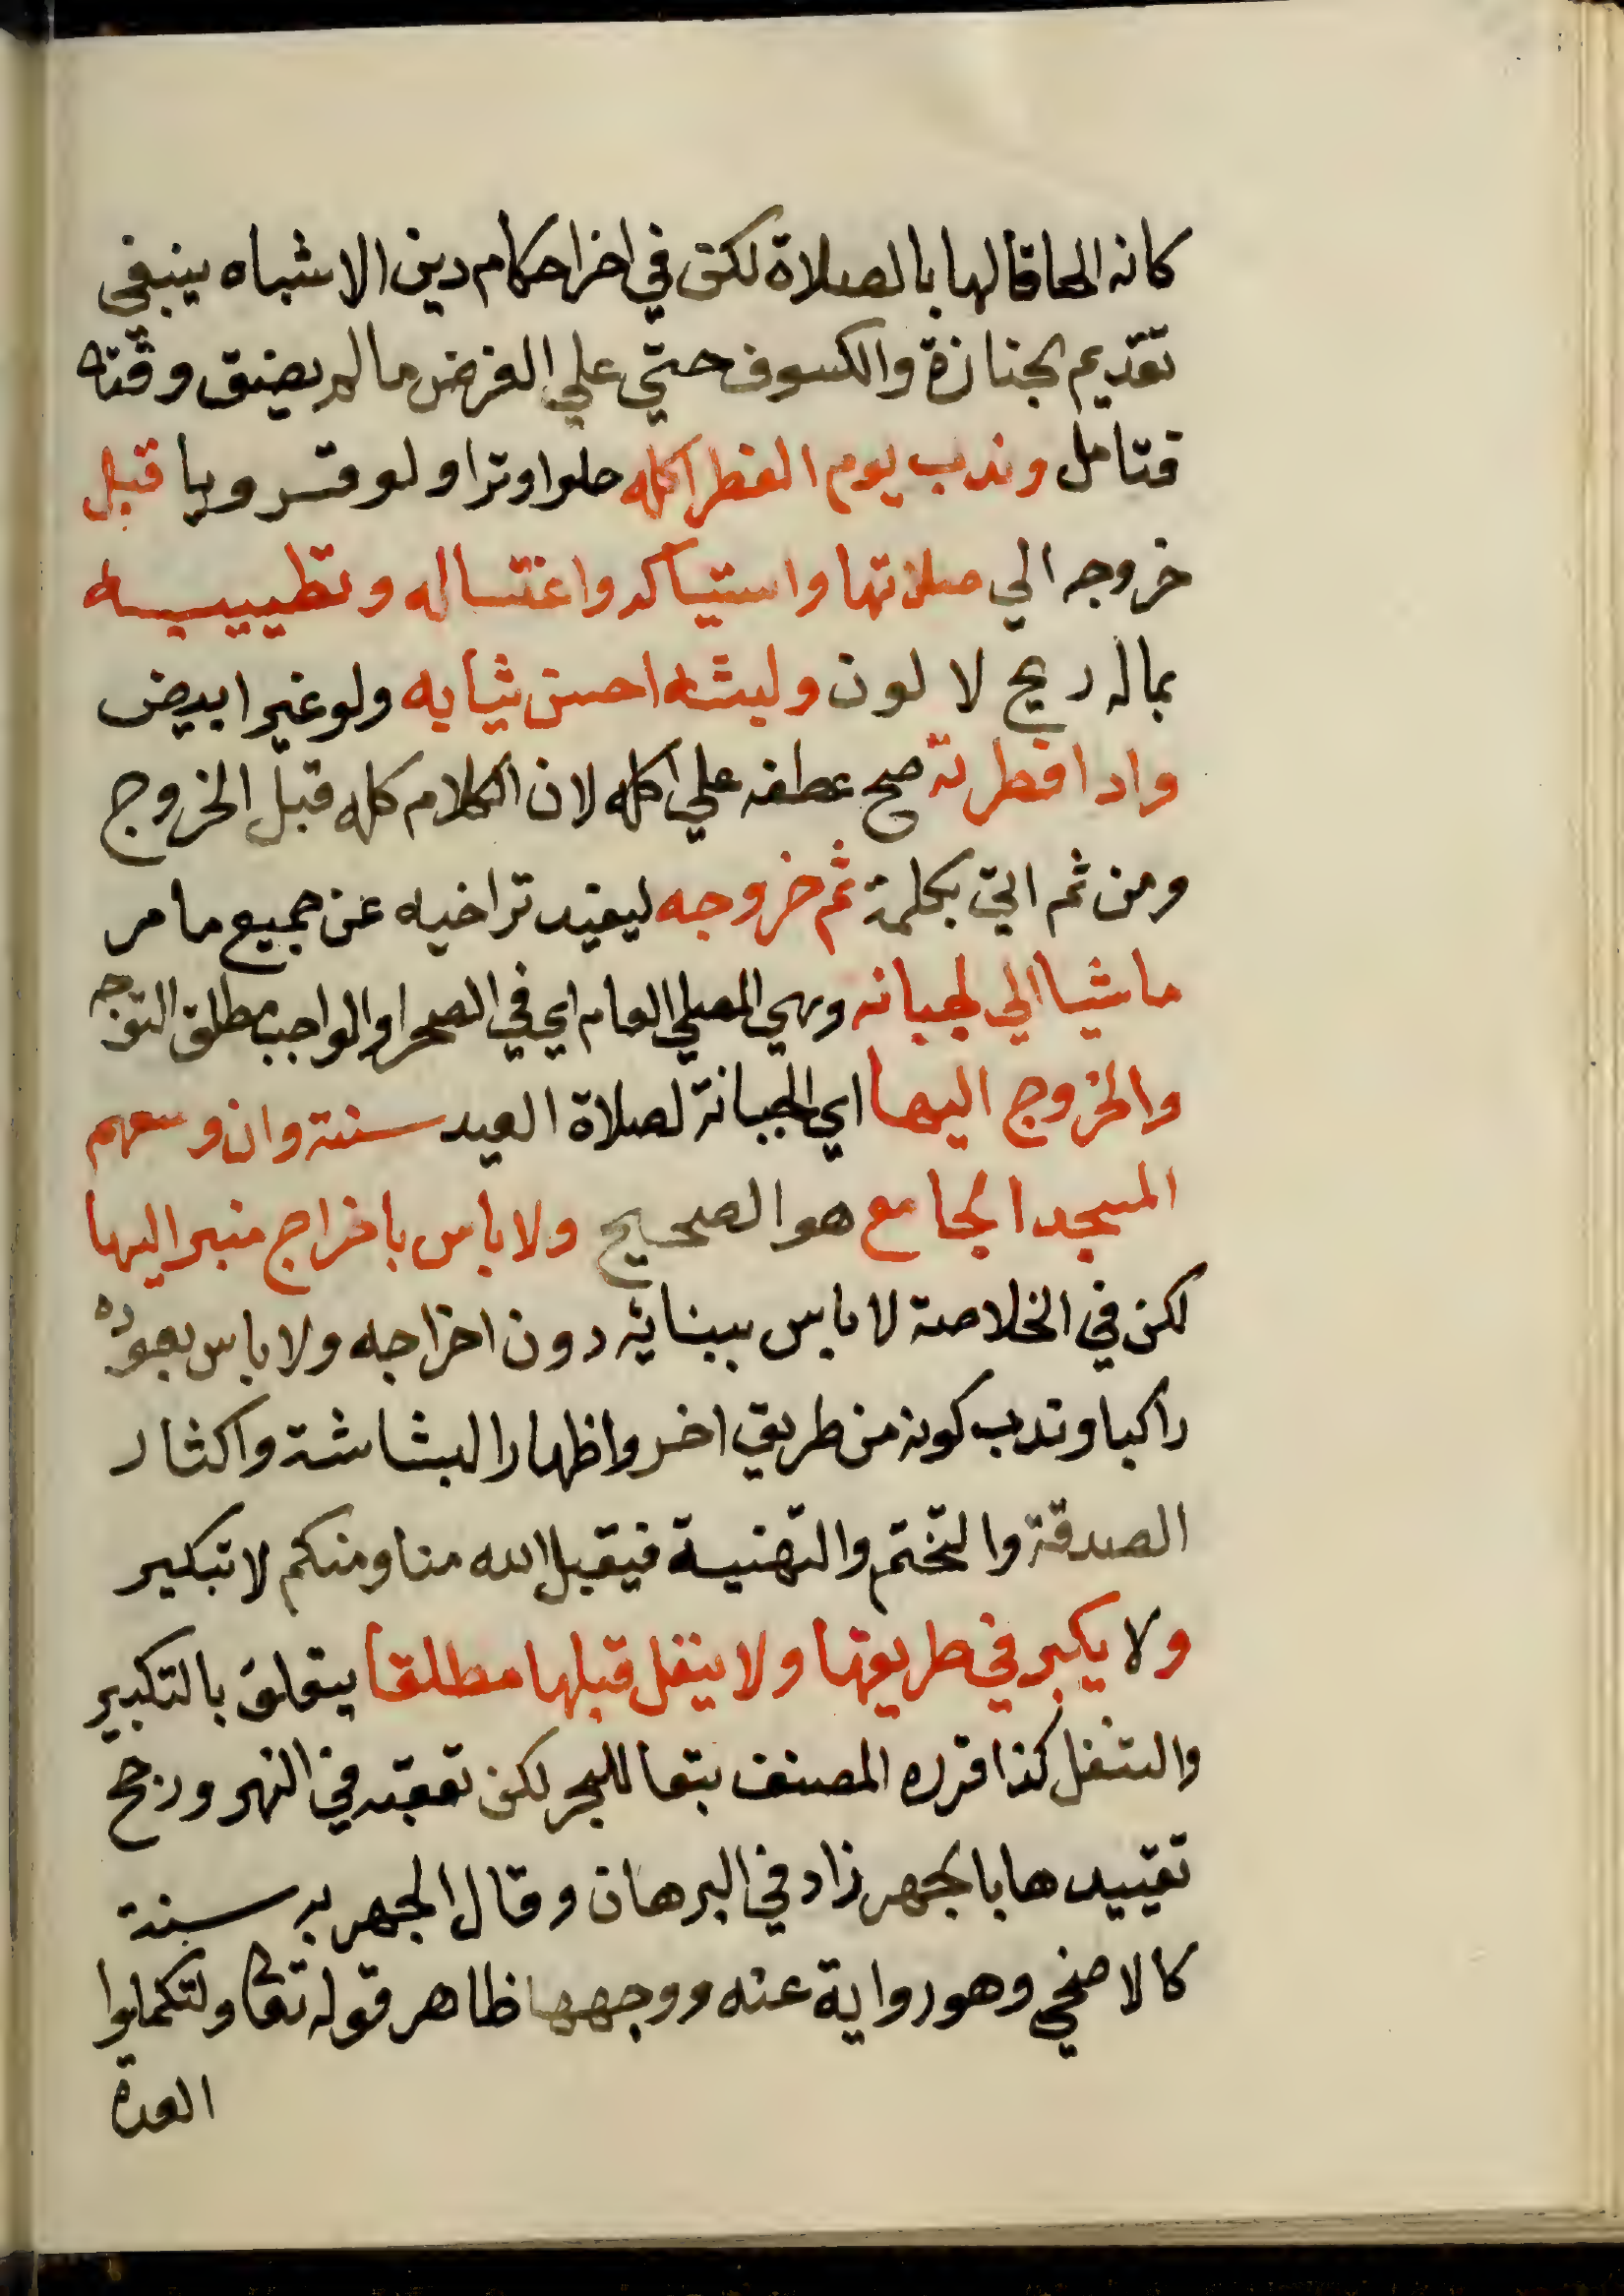 كانه الحاقا لها بالصلاة لكن في اخر احكام دين الاشباه ينبغي
تقديم الجنازة والكسوف حتي علي الفرض مالم يضيق وقته
فتامل وندب يوم الفطر اكله حلوا وترا ولو قرويا قبل
خروجه الي صلاتها واستياكه واغتساله وتطييبه
بماله ريح لا لون ولبسه احسن ثيابه ولو غير ابيض
واداء فطرته صح عطفه علي اكله لان الكلام كله قبل الخروج
ومن ثم اتي بكلمة ثم خروجه ليفيد تراخيه عن جميع ما مر
ماشيا الي الجبانه وهي المصلي العام اي في الصحرا والواجب مطلق التوجه
والخروج اليها اي الجبانة لصلاة العيد سنة وان وسعهم
المسجد الجامع هو الصحيح ولا باس باخراج منبر اليها
لكن في الخلاصة لا باس ببنائه دون اخراجه ولا باس بعوده
راكبا وندب كونه من طريق اخر واظهار البشاشة واكثار
الصدقة والتختم والتهنية فيقبل الله منا ومنكم لا تبكير
ولا يكبر في طريقها ولا ينفل قبلها مطلقا يتعلق بالتكبير
والتنفل كذا قرره المصنف تبعا للبحر لكن تعقبه في النهر ورجح
تقييدها بالجهر زاد في البرهان وقال الجهر به سنة
كالاضحي وهو رواية عنه ووجهها ظاهر قوله تعا ولتكملوا
العدة